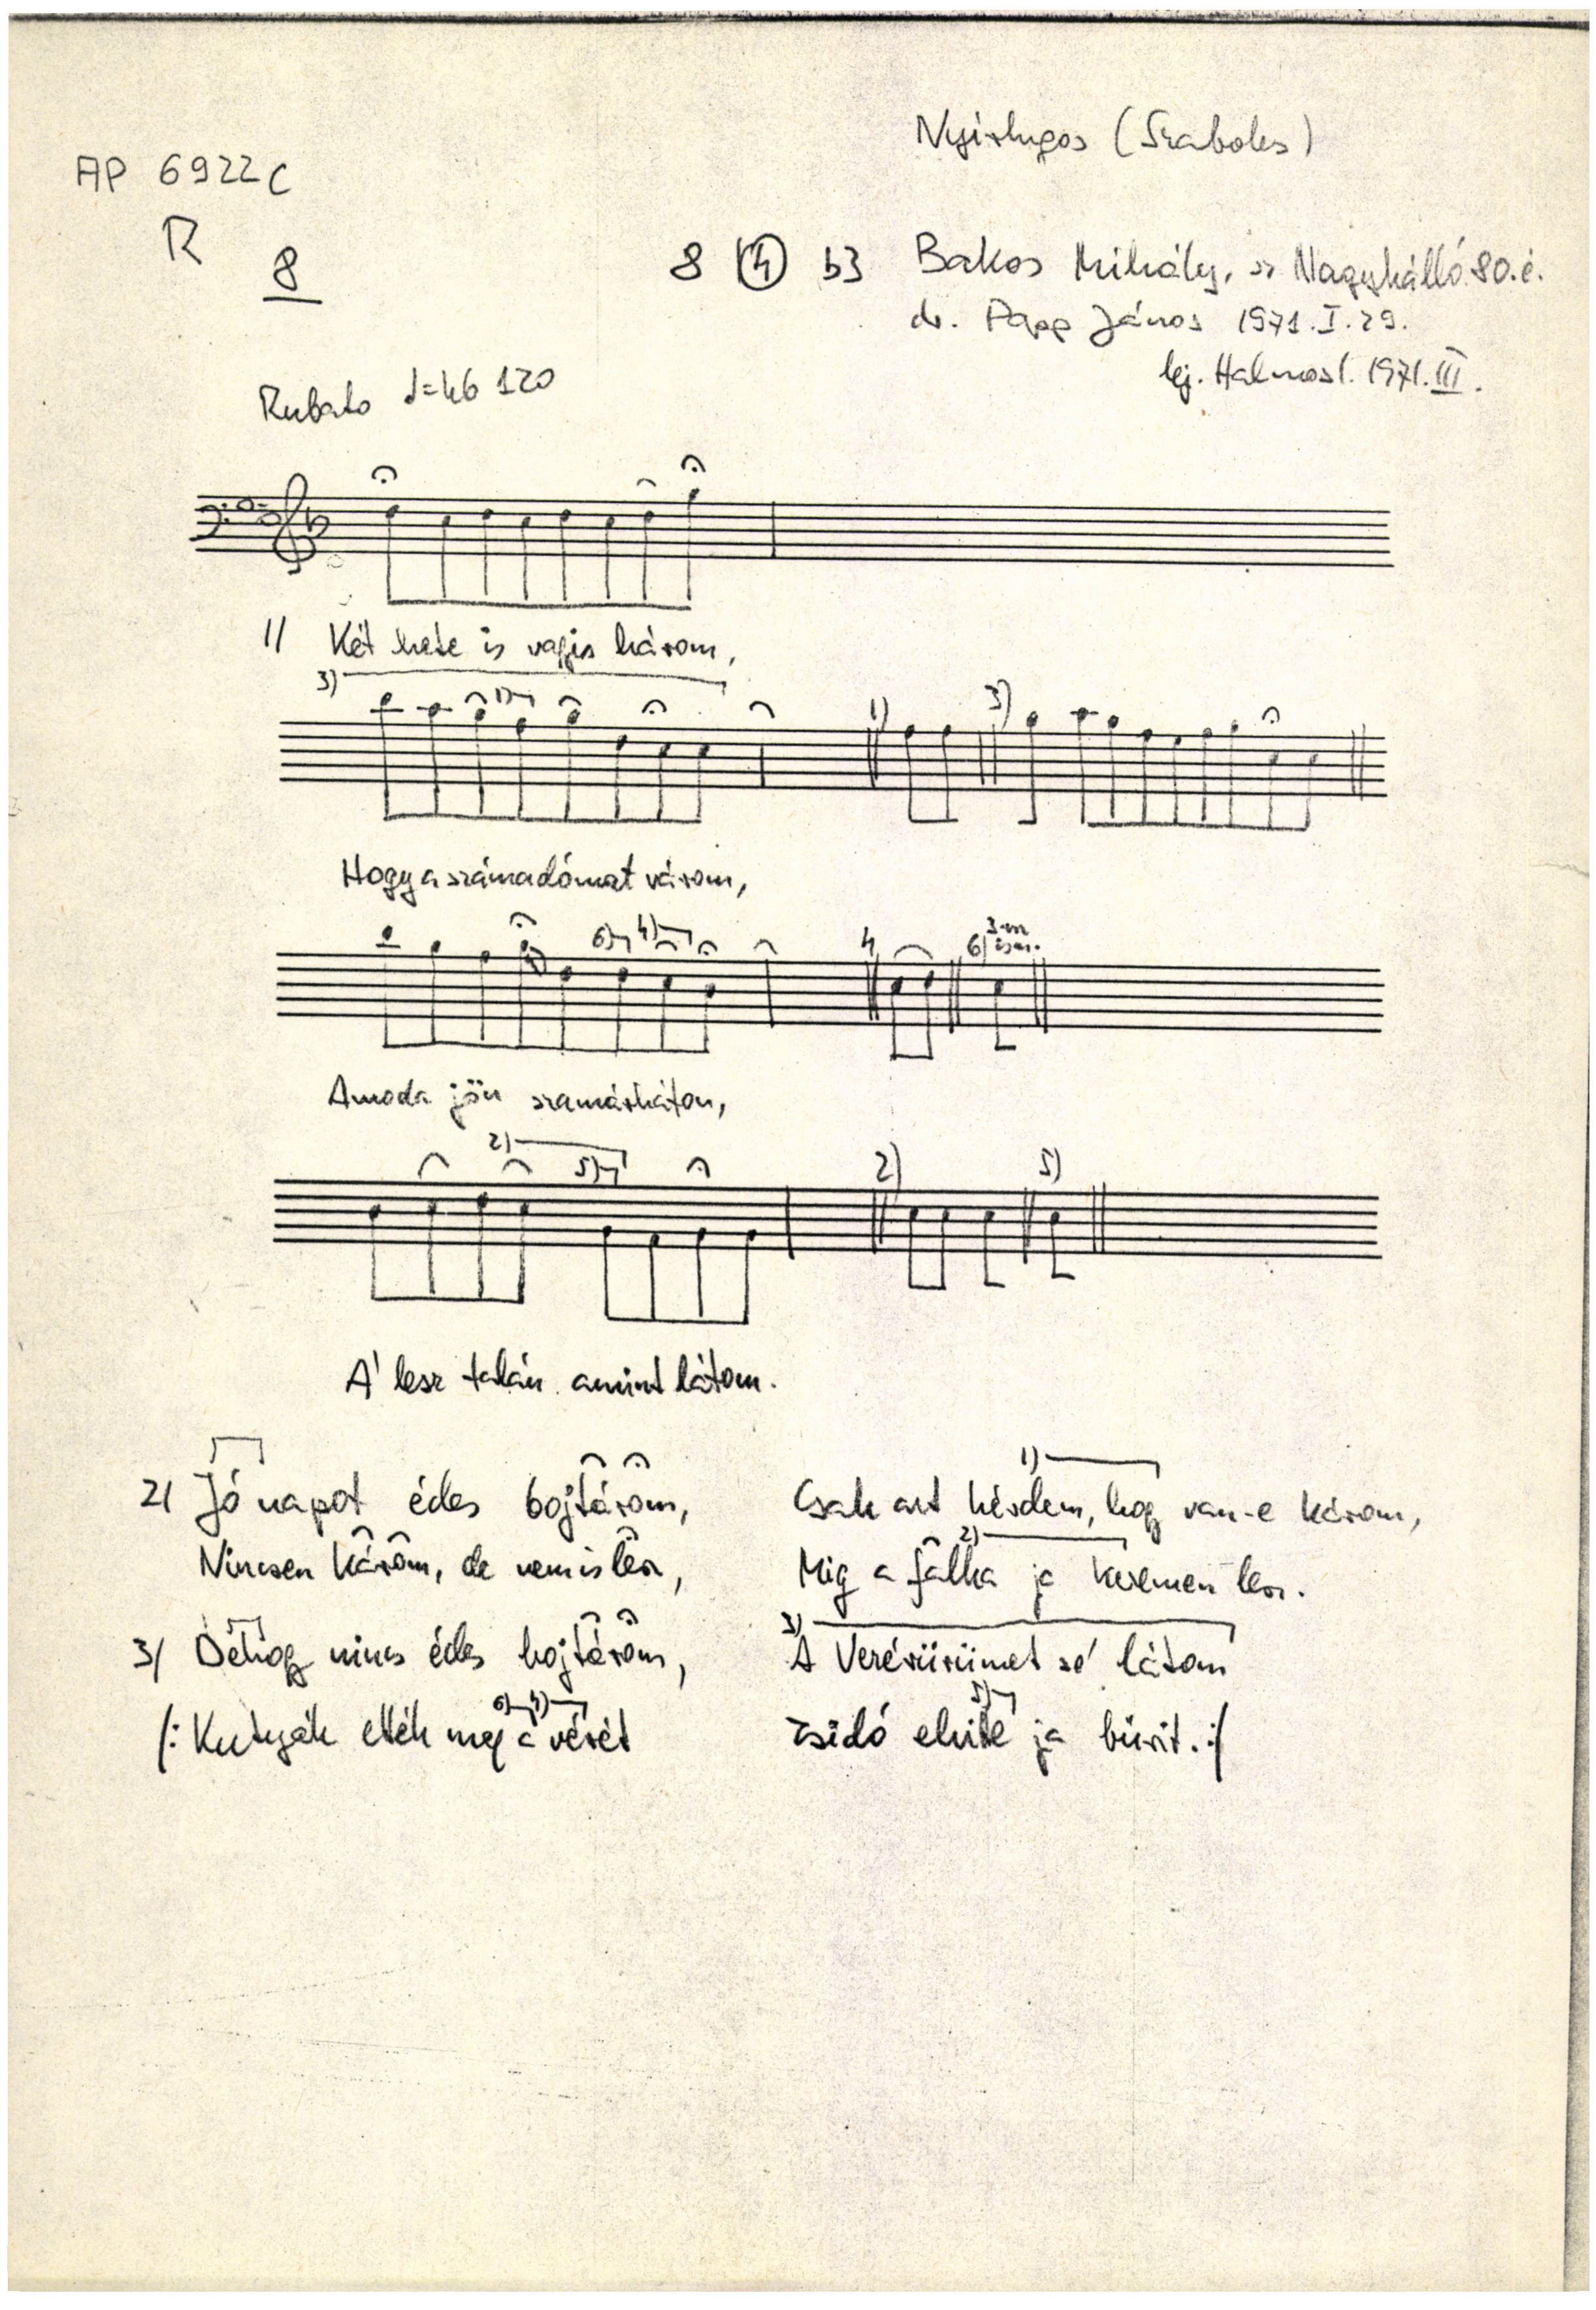 Nyírlugos (Szabolcs)
AP 6922 c
R
8
8 (4) b3 Bakos Mihály, sz Nagykálló 80.é.
dr. Papp János 1971.I.29.
lej. Halmos I. 1971.III.
Rubato 120
1/ Két hete is vagis három,
3)
1)
1) 3)
Hogy a számadómat várom,
6) 4)
4 6) 3-m
Amoda jön szamárháton,
2)
5)
2) 5)
A' lesz talán amint látom.
1)
2/ Jó napot édes bojtárom, Csak azt kérdem, hogy van-e károm,
2)
Nincsen károm, de nem is lesz, Mig a falka ja kezemen lesz.
3)
3/ Déhogy nincs édes bojtárom, A Verésürümet sé látom
6) 4) 5)
/: Kutyák ették meg a vérét Zsidó elvite ja bűrit. :/